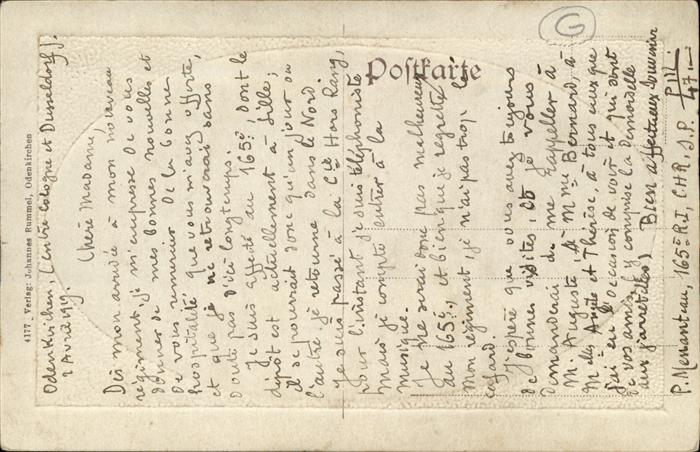 Postkarte
4177 - Verlag: Johannes Rummel, Odenkirchen
G
Odenkirchen, (entre Cologne et Dusseldorf).
2 Avril 1919.
Chère Madame,
Dès mon arrivée à mon nouveau
régiment, je m'empresse de vous
donner de mes bonnes nouvelles et
de vous remercier de la bonne
hospitalité que vous m'avez offerte,
et que je ne retrouverai sans
doute pas d'ici longtemps.
Je suis affecté au 165e, dont le
dépôt est actuellement à Lille;
il se pourrait donc qu'un jour ou
l'autre je retourne dans le Nord.
Je suis passé à la Cie Hors Rang,
pour l'instant je suis téléphoniste
mais je compte entrer à la
musique.
Je ne serai donc pas malheureux
au 165e, et bien que je regrette
mon régiment, je n'ai pas trop le
cafard.
J'espère que vous avez toujours
de bonnes visites, et je vous
demanderai de me rappeller à
M. Auguste, à Mme Bernard, à
Mlles Angèle et Thérèse, à tous ceux que
j'ai eu l'occasion de voir et qui sont
de vos amis, (y comprise la Demoiselle
aux jarretelles) Bien affectueux souvenir
P. Menanteau, 165e R.I, CHR, S.P.